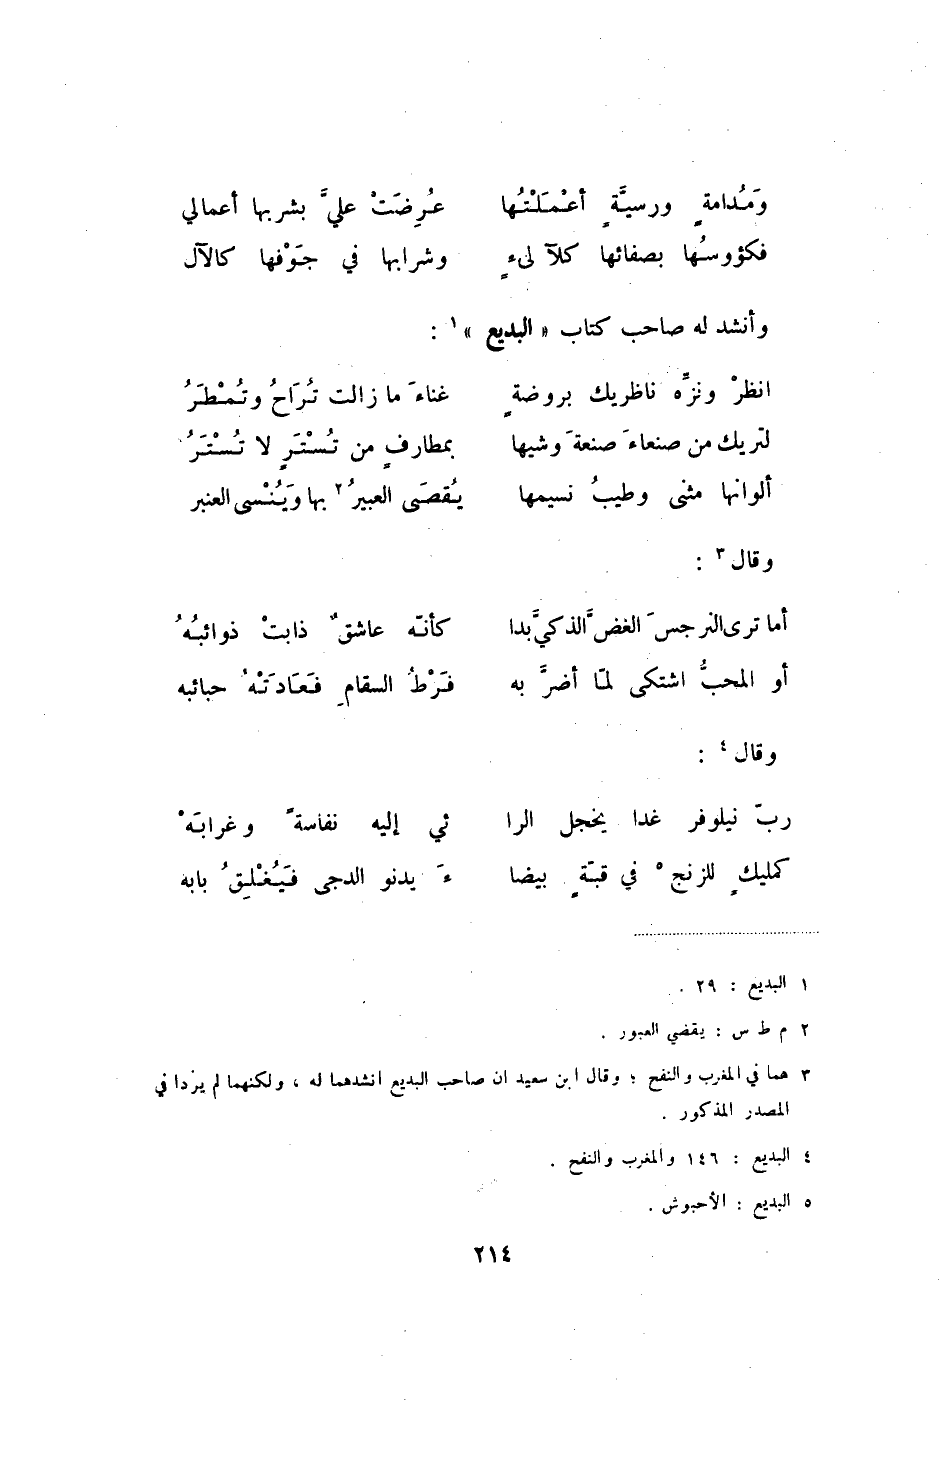 وَمُدامةٍ ورسيَّةٍ أعْمَلْتُها عُرِضَتْ عليَّ بشربها أعمالي
فكؤوسُها بصفائها كلآلىءٍ وشرابها في جَوْفها كالآل
وأنشد له صاحب كتاب « البديع »١ :
انظرْ ونزِّه ناظريك بروضةٍ غناءَ ما زالت تُرَاحُ وتُمْطَرُ
لتريك من صنعاءَ صنعةَ وشيها بمطارفٍ من تُسْتَرٍ لا تُسْتَرُ
ألوانها مثنى وطيبُ نسيمها يُقصَى العبيرُ٢ بها ويَُنْسى العنبر
وقال٣ :
أما ترى النرجسَ الغضَّ الذكيَّ بدا كأنّه عاشقٌ ذابتْ ذوائبُهُ
أو المحبُّ اشتكى لمّا أضرَّ به فَرْطُ السقامِ فَعَادَتْهُ حبائبه
وقال٤ :
ربّ نيلوفر غدا يخجل الرا ئي إليه نفاسةً وغرابَهْ
كمليكٍ للزنج٥ في قبّةٍ بيضا ءَ يدنو الدجى فَيُغْلِقُ بابه
١ البديع : ٢٩ .
٢ م ط س : يقضي العبور .
٣ هما في المغرب والنفح ؛ وقال ابن سعيد ان صاحب البديع انشدهما له ، ولكنهما لم يردا في
المصدر المذكور .
٤ البديع : ١٤٦ والمغرب والنفح .
٥ البديع : الأحبوش .
٢١٤